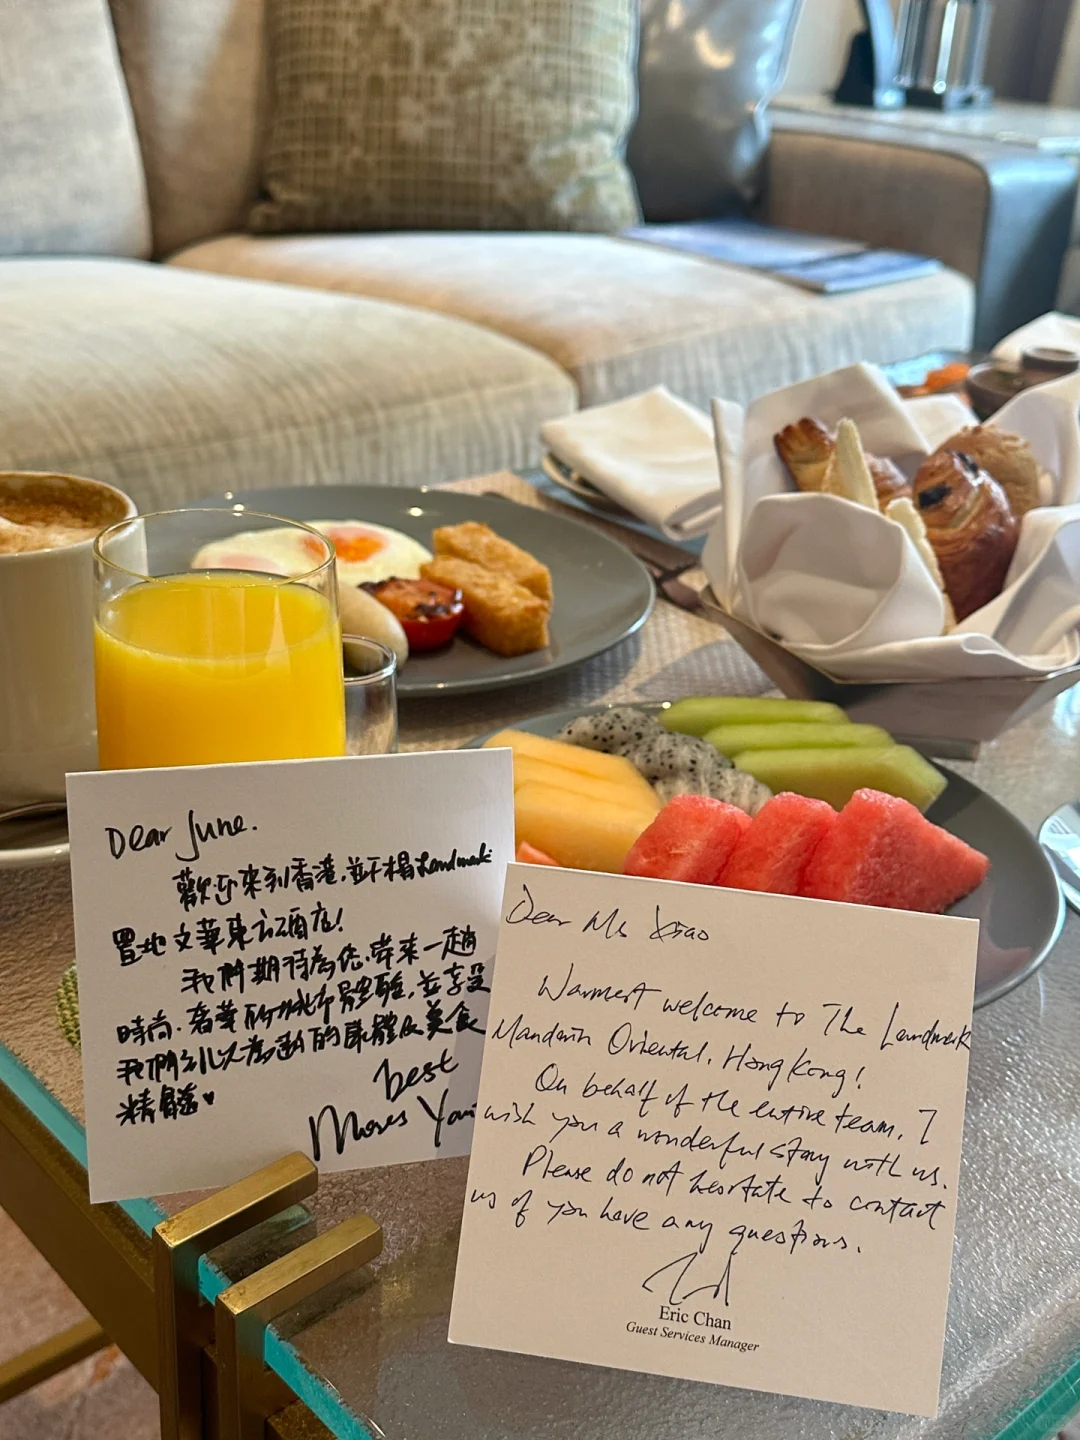 Dear June.
歡迎來到香港,並下榻Landmark
置地文華東方酒店!
我們期待為您帶來一趟
時尚,奢華的城市體驗,並享受
我們引以為傲的康體及美食
精髓♥
Best
Moves
Dear Ms Xiao
Warmest welcome to The Landmark
Mandarin Oriental, Hong Kong!
On behalf of the entire team, I
wish you a wonderful stay with us.
Please do not hesitate to contact
us if you have any questions.
Eric Chan
Guest Services Manager